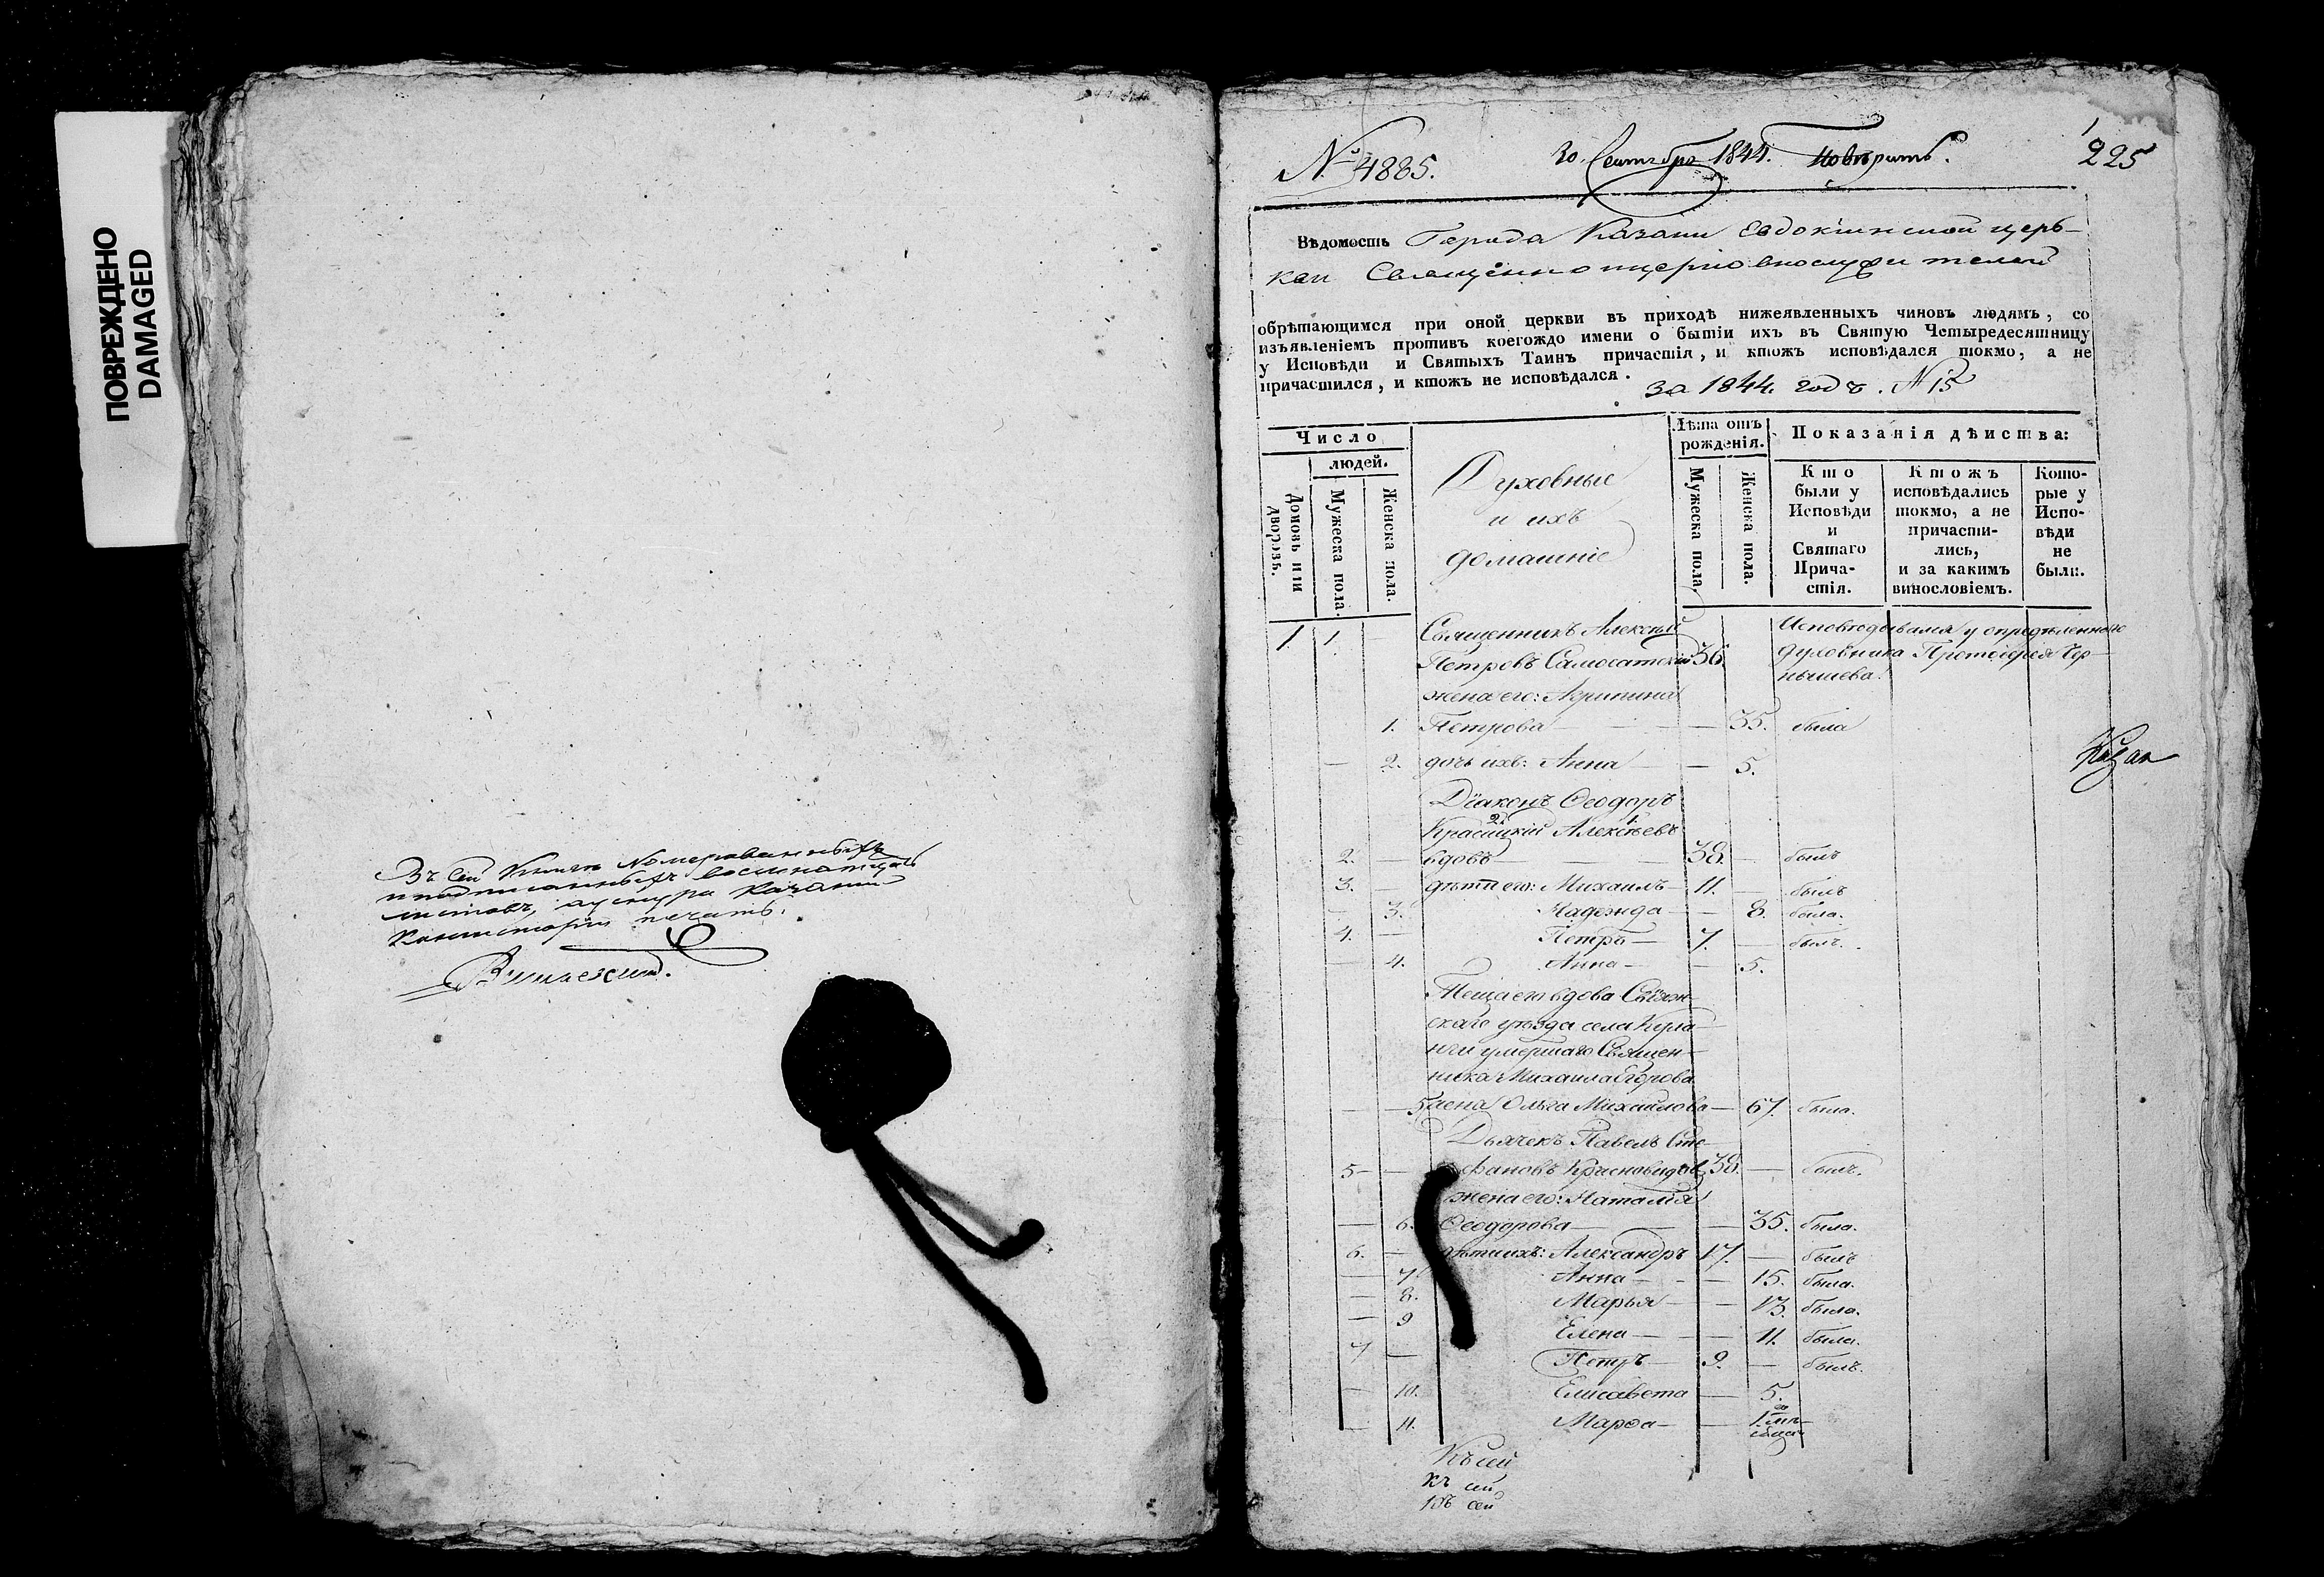 ПОВРЕЖДЕНО
DAMAGED
Въ сей Книгѣ Номерованныхъ
и подписанныхъ восемнатцать
листовъ, а у шнура Казанской
Консисторіи печать.
№ 4885.
30. Сентября 1844. Повѣрить.
225
Вѣдомость Города Казани Евдокіинской церк-
кви Священноицерковнослужителей
обрѣтающимся при оной церкви въ приходѣ нижеявленныхъ чиновъ людямъ, со
изъявленіемъ противъ коегождо имени о бытіи ихъ въ Святую Четыредесятницу
у Исповѣди и Святыхъ Таинъ причастія, и ктожъ исповѣдался токмо, а не
причастился, и ктожъ не исповѣдался.
за 1844. годъ. № 15
Число
людей.
Домовъ или дворовъ.
Мужеска пола.
Женска пола.
Духовные
и ихъ
домашніе
Лѣта отъ
рожденія.
Мужеска пола.
Женска пола.
Показанія дѣиства:
Кто
были у
Исповѣди
и
Святаго
Прича-
стія.
Ктожъ
исповѣдались
токмо, а не
причасти-
лись,
и за какимъ
винословіемъ.
Кото-
рые у
Испо-
вѣди
не
были.
1. 1. — Священникъ Алексѣй
Петровъ Самосатскій 36.
Исповѣдывался у опредѣленнаго
духовника Протоіерея Чер-
нышева.
жена его: Агрипина
1. Петрова — — 35. была
— 2. дочь ихъ: Анна — — 5.
Казан
Діаконъ Ѳеодоръ
Красицкій Алексѣевъ
2. — вдовъ — 38. — былъ
3. — дѣти его: Михаилъ — 11. — былъ
— 3. Надежда — — 8. была.
4. — Петръ — 7. — былъ.
— 4. Анна — — 5.
Теща его вдова Свіяж-
скаго уѣзда села Кула-
нги умершаго Священ-
ника Михаила Егорова
— 5 жена Ольга Михайлова — 67. была.
Дьячекъ Павелъ Сте-
5 — — фановъ Красновидовъ 38. — былъ.
жена его: Наталія
— 6. Ѳеодорова — — 35. была.
6. — дѣти ихъ: Александръ 17. — былъ
— 7 Анна — — 15. была.
— 8. Марья — — 13. была.
— 9 Елена — — 11. была.
7 — Петръ — 9. — былъ.
— 10. Елисавета — 5.
— 11. Марѳа — — 1.
Къ сей
къ сей
Къ сей